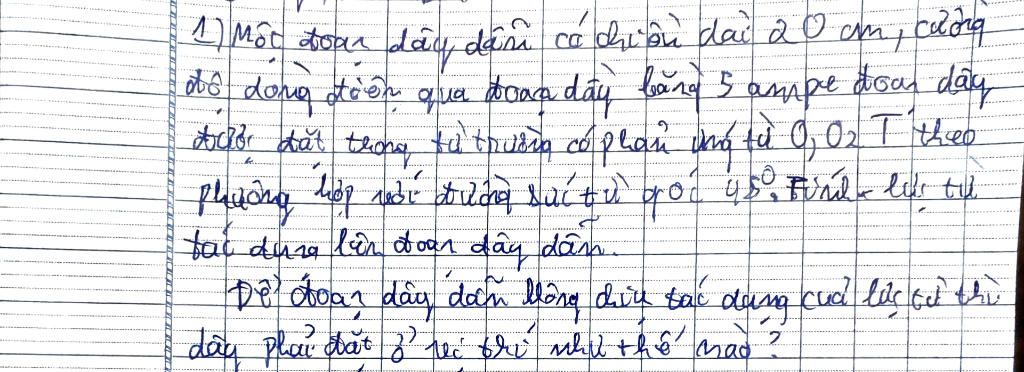 1) Một đoạn dây dẫn có chiều dài 20 cm, cường
độ dòng điện qua đoạn dây bằng 5 ampe đoạn dây
được đặt trong từ trường có phản ứng từ 0,02 T theo
phương hợp với đường sức từ góc 45°. Tính lực từ
tác dụng lên đoạn dây dẫn.
Để đoạn dây dẫn không chịu tác dụng của lực từ thì
dây phải đặt ở vị trí như thế nào?